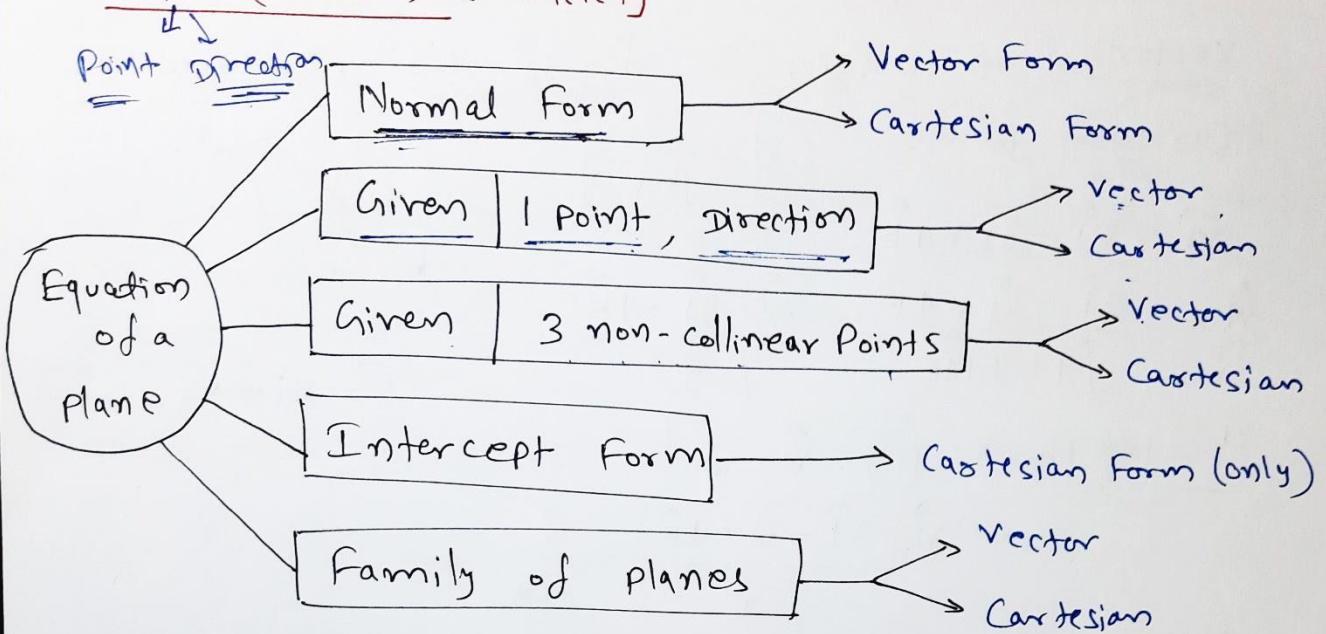 Point Direction
Normal Form
Vector Form
Cartesian Form
Given 1 point, Direction
Vector
Cartesian
Equation
of a
plane
Given 3 non-collinear Points
Vector
Cartesian
Intercept Form
Cartesian Form (only)
Family of planes
Vector
Cartesian